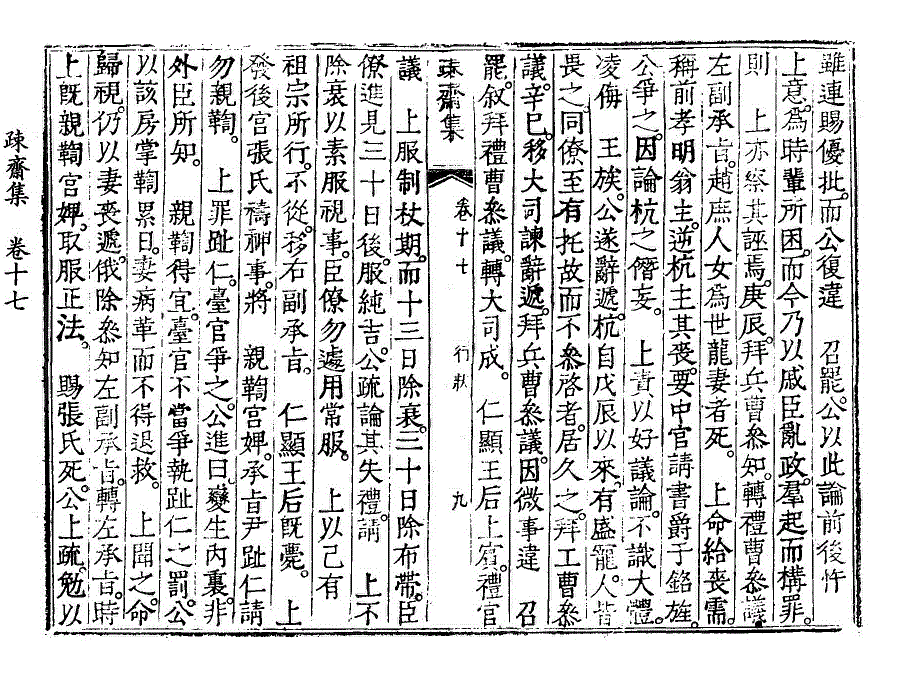 雖連賜優批。而公復違 召罷。公以此論前後忤
上意。為時輩所困。而今乃以戚臣亂政。羣起而構罪。
則 上亦察其誣焉。庚辰。拜兵曹參知。轉禮曹參議,
左副承旨。趙庶人女為世龍妻者死。 上命給喪需。
稱前孝明翁主。逆杭主其喪。要中官請書爵子銘旌。
公爭之。因論杭之僭妄。 上責以好議論。不識大體。
凌侮 王族。公遂辭遞。杭自戊辰以來。有盛寵。人皆
畏之。同僚至有托故而不參啓者。居久之。拜工曹參
議。辛巳。移大司諫辭遞。拜兵曹參議。因微事違 召
罷。叙拜禮曹參議。轉大司成。 仁顯王后上賓。禮官
疎齋集 卷十七 行狀 九
議 上服制杖期。而十三日除衰。三十日除布帶。臣
僚進見三十日後。服純吉。公疏論其失禮。請 上不
除衰以素服視事。臣僚勿遽用常服。 上以己有
祖宗所行。不從。移右副承旨。 仁顯王后旣薨。 上
發後宮張氏禱神事。將 親鞫宮婢。承旨尹趾仁請
勿親鞫。 上罪趾仁。臺官爭之。公進曰。變生內裏。非
外臣所知。 親鞫得宜。臺官不當爭執趾仁之罰。公
以該房掌鞫累日。妻病革而不得退救。 上聞之。命
歸視。仍以妻喪遞。俄除參知左副承旨。轉左承旨。時
上旣親鞫宮婢。取服正法。 賜張氏死。公上疏。勉以
疎齋集 卷十七